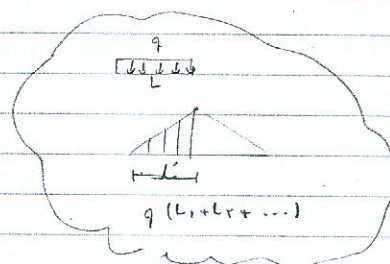 q
L
L
q (L₁+L₂+ ...)